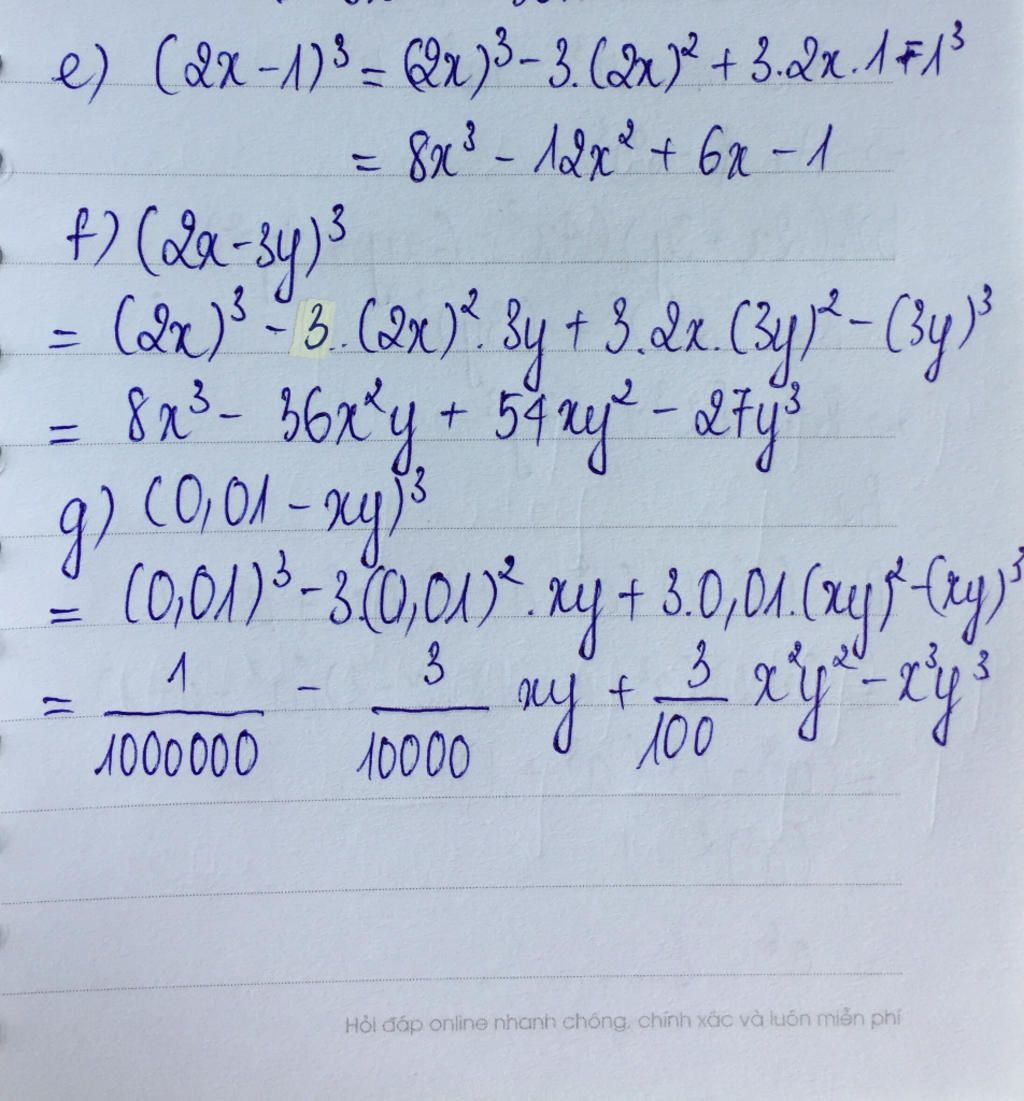 e) (2x - 1)³ = (2x)³ - 3.(2x)² + 3.2x.1 - 1³
= 8x³ - 12x² + 6x - 1
f) (2x - 3y)³
= (2x)³ - 3.(2x)².3y + 3.2x.(3y)² - (3y)³
= 8x³ - 36x²y + 54xy² - 27y³
g) (0,01 - xy)³
= (0,01)³ - 3.(0,01)².xy + 3.0,01.(xy)² - (xy)³
= 1/1000000 - 3/10000 xy + 3/100 x²y² - x³y³
Hỏi đáp online nhanh chóng, chính xác và luôn miễn phí